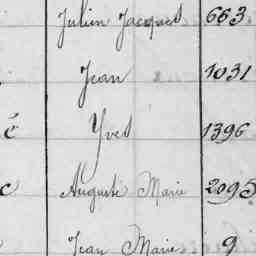 Julien Jacques 663
Jean 1031
é Yves 1396
c Auguste Marie 2095
Jean Marie 9